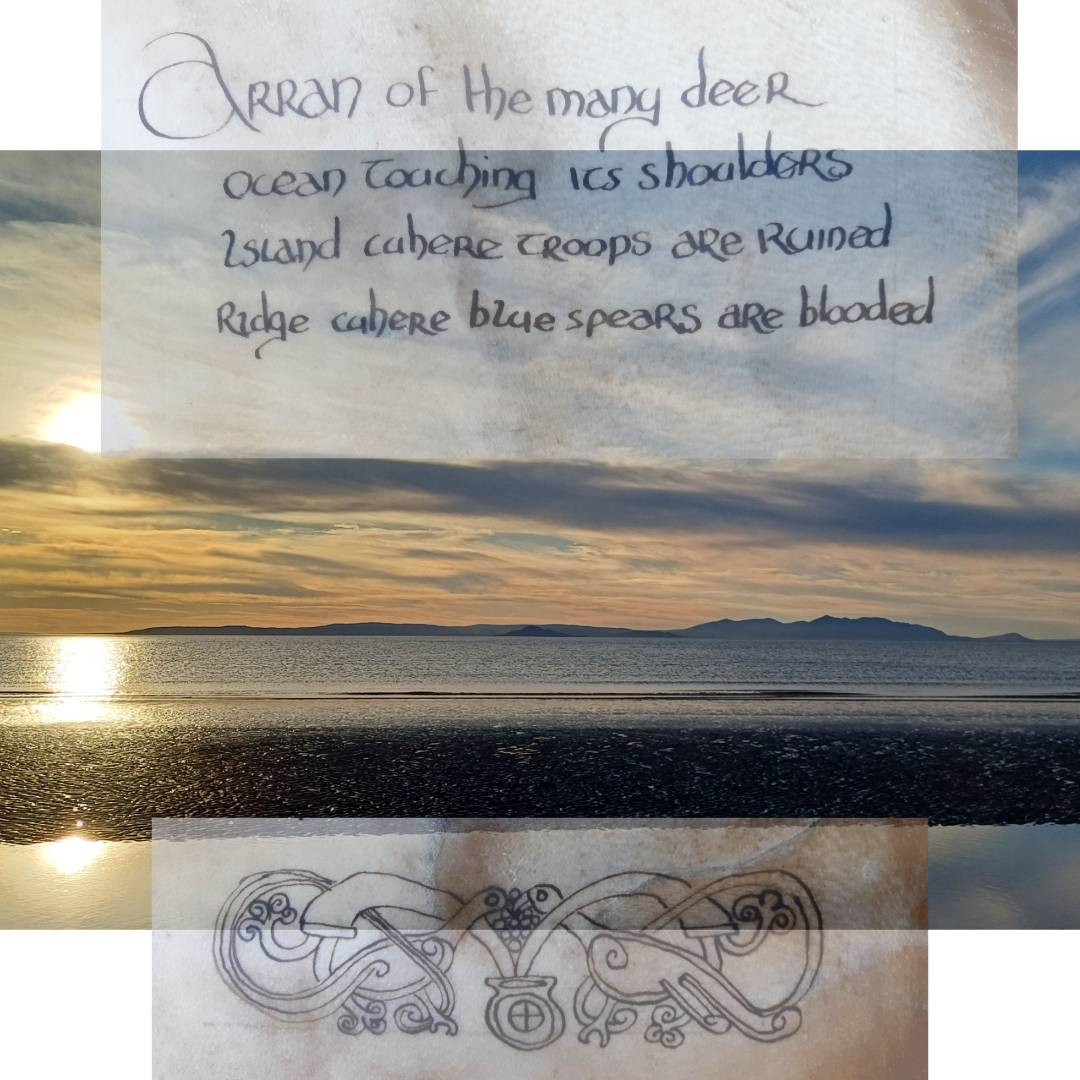 Arran of the many deer
ocean touching its shoulders
Island where troops are ruined
Ridge where blue spears are blooded